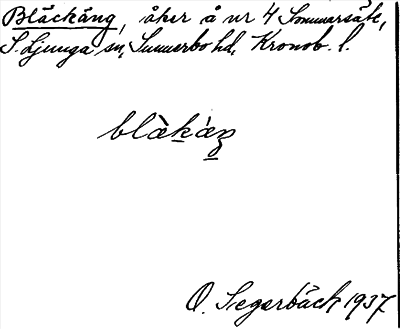 Bläckäng, åker å nr 4 Sommarsäte,
S. Ljunga sn, Sunnerbo hd, Kronob. l.
blàkáŋ
O. Segerbäck 1937